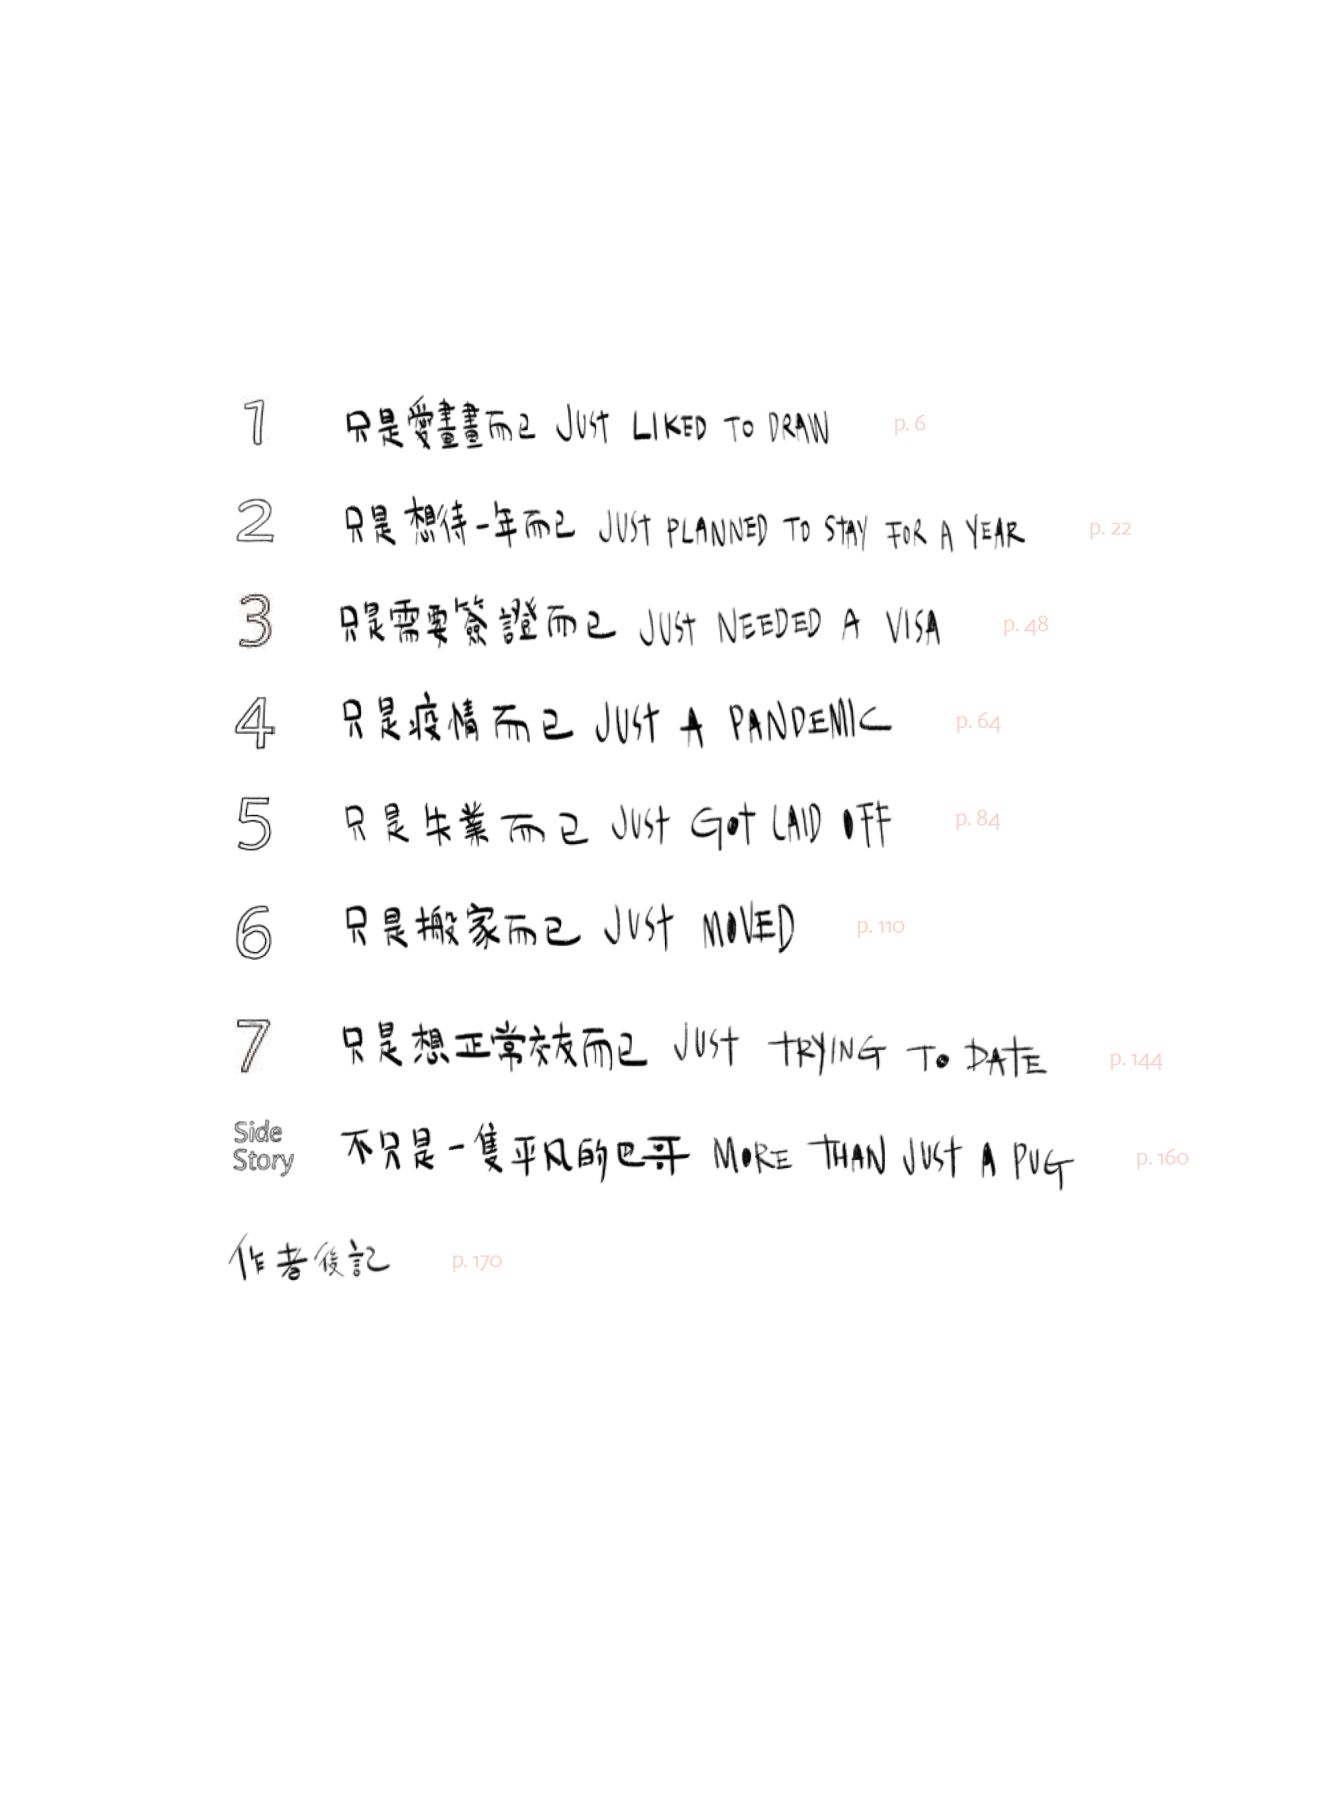 1 只是愛畫畫而已 JUST LIKED TO DRAW p. 6
2 只是想待一年而已 JUST PLANNED TO STAY FOR A YEAR p. 22
3 只是需要簽證而已 JUST NEEDED A VISA p. 48
4 只是疫情而已 JUST A PANDEMIC p. 64
5 只是失業而已 JUST GOT LAID OFF p. 84
6 只是搬家而已 JUST MOVED p. 110
7 只是想正常交友而已 JUST TRYING TO DATE p. 144
Side Story 不只是一隻平凡的巴哥 MORE THAN JUST A PUG p. 160
作者後記 p. 170